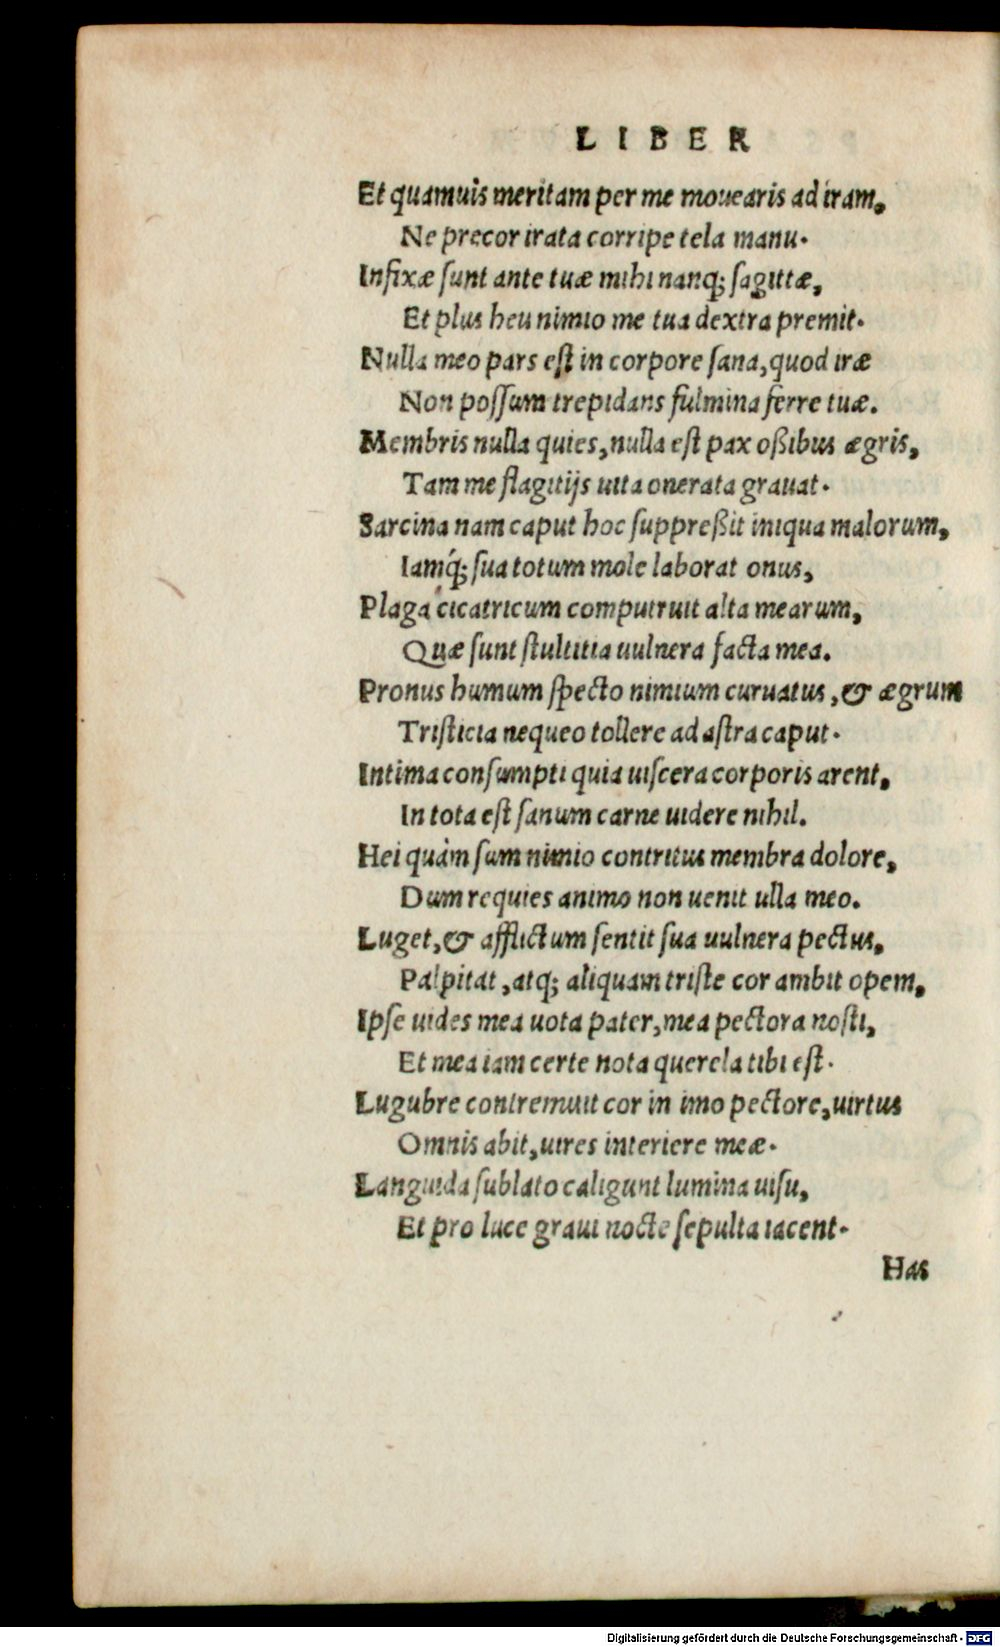 LIBER
Et quamuis meritam per me mouearis ad iram,
Ne precor irata corripe tela manu.
Infixæ ſunt ante tuæ mihi nanq; ſagittæ,
Et plus heu nimio me tua dextra premit.
Nulla meo pars eſt in corpore ſana, quod iræ
Non poſſum trepidans fulmina ferre tuæ.
Membris nulla quies, nulla eſt pax oßibus ægris,
Tam me flagitijs uita onerata grauat.
Sarcina nam caput hoc ſuppreßit iniqua malorum,
Iamq́; ſua totum mole laborat onus,
Plaga cicatricum computruit alta mearum,
Quæ ſunt ſtultitia uulnera facta mea.
Pronus humum ſpecto nimium curuatus, & ægrum
Triſticia nequeo tollere ad aſtra caput.
Intima conſumpti quia uiſcera corporis arent,
In tota eſt ſanum carne uidere nihil.
Hei quàm ſum nimio contritus membra dolore,
Dum requies animo non uenit ulla meo.
Luget, & afflictum ſentit ſua uulnera pectus,
Palpitat, atq; aliquam triſte cor ambit opem,
Ipſe uides mea uota pater, mea pectora noſti,
Et mea iam certe nota querela tibi eſt.
Lugubre contremuit cor in imo pectore, uirtus
Omnis abit, uires interiere meæ.
Languida ſublato caligunt lumina uiſu,
Et pro luce graui nocte ſepulta iacent.
Has
Digitalisierung gefördert durch die Deutsche Forschungsgemeinschaft - DFG